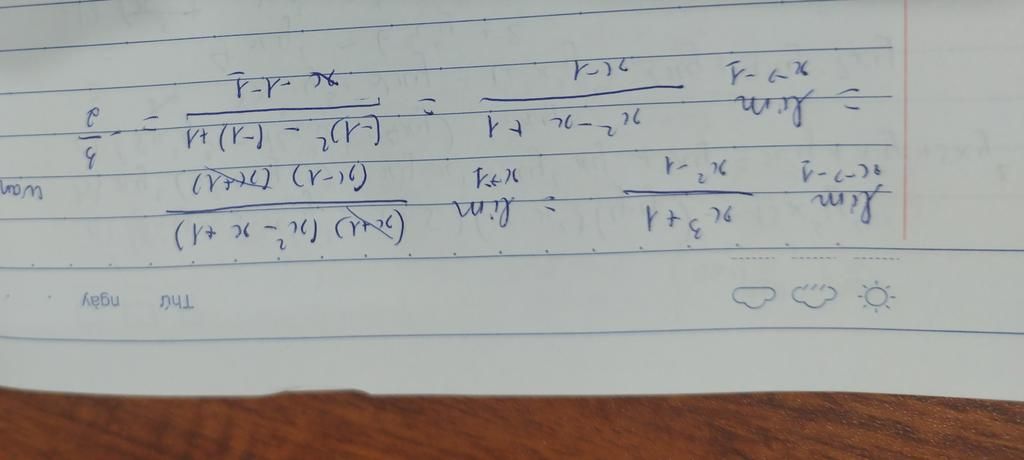 Thứ ngày
lim x→-1 (x³ + 1)/(x² - 1) = lim x→-1 ((x+1) (x² - x + 1))/((x-1) (x+1))
= lim x→-1 (x² - x + 1)/(x-1) = ((-1)² - (-1) + 1)/(-1-1) = -3/2